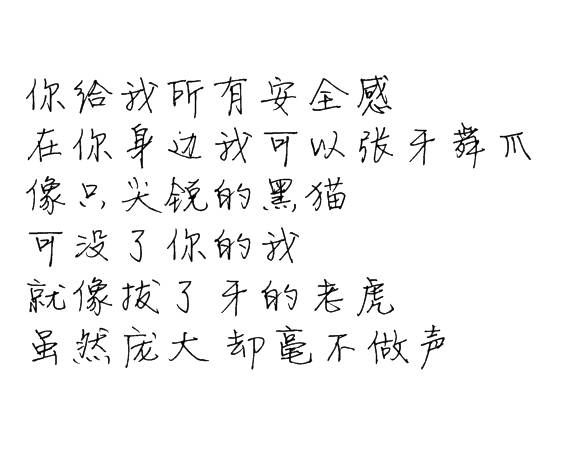 你给我所有安全感
在你身边我可以张牙舞爪
像只尖锐的黑猫
可没了你的我
就像拔了牙的老虎
虽然庞大却毫不做声